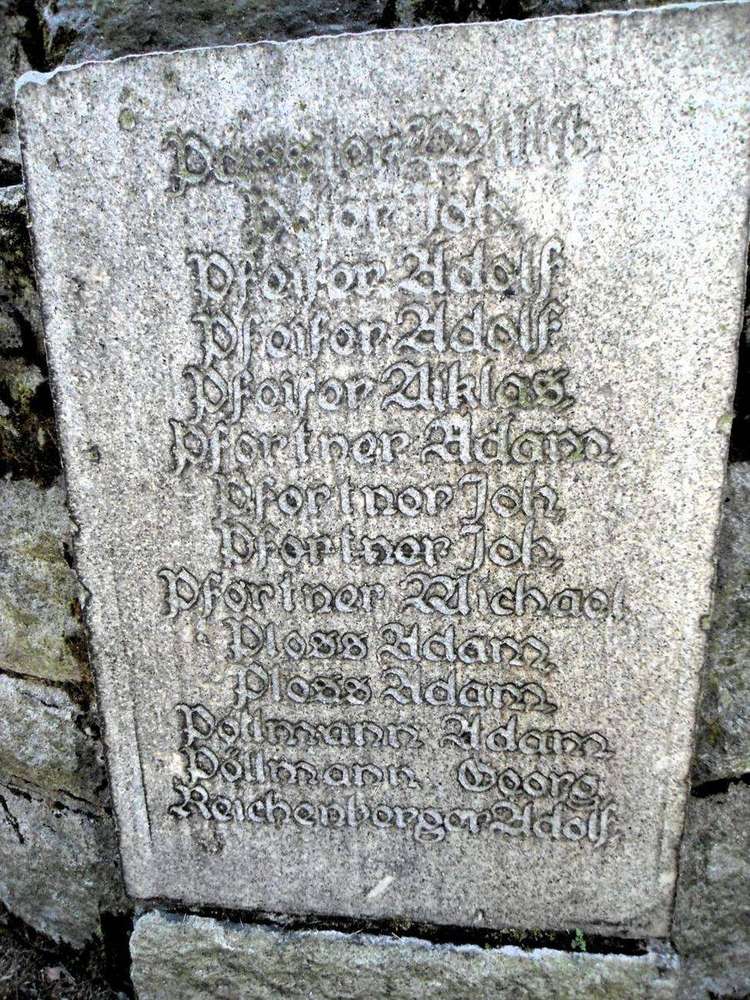 Joh.
Pfeifer Adolf
Pfeifer Adolf
Pfeifer Niklas.
Pförtner Adam.
Pförtner Joh.
Pförtner Joh.
Pförtner Michael.
Ploss Adam.
Ploss Adam.
Pöllmann Adam.
Pöllmann Georg.
Reichenberger Adolf.